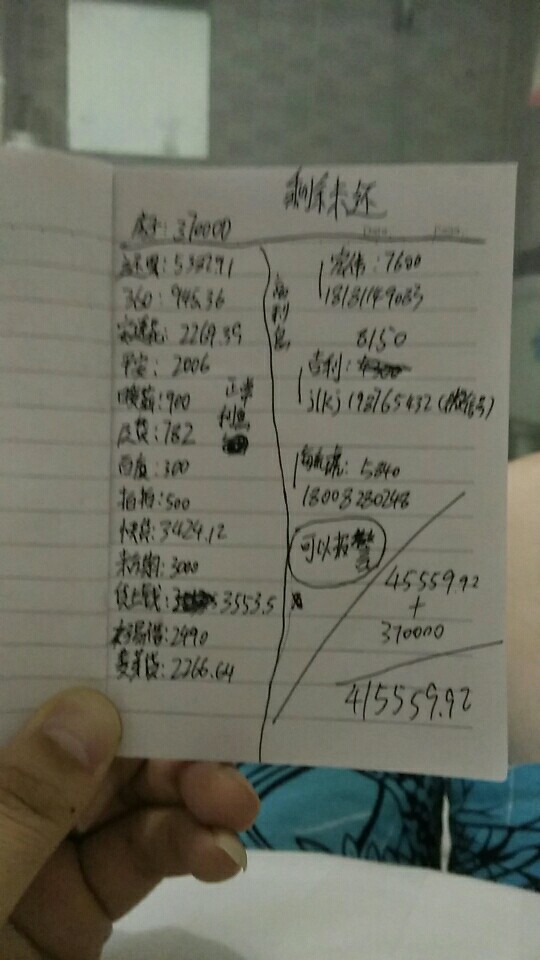 剩余未还
370000
还呗：5387.91
360：945.36
安逸花：2269.39
平安：2006
900
及贷：782
百度：300
拍拍：500
快贷：3424.12
来分期：3000
贷上钱：3553.5
2490
2266.64
正常
利息
高利息
宏伟：7600
18181149083
8150
吉利：
jlkj198765432
5840
18008280248
可以报警
45559.92
+
370000
415559.92